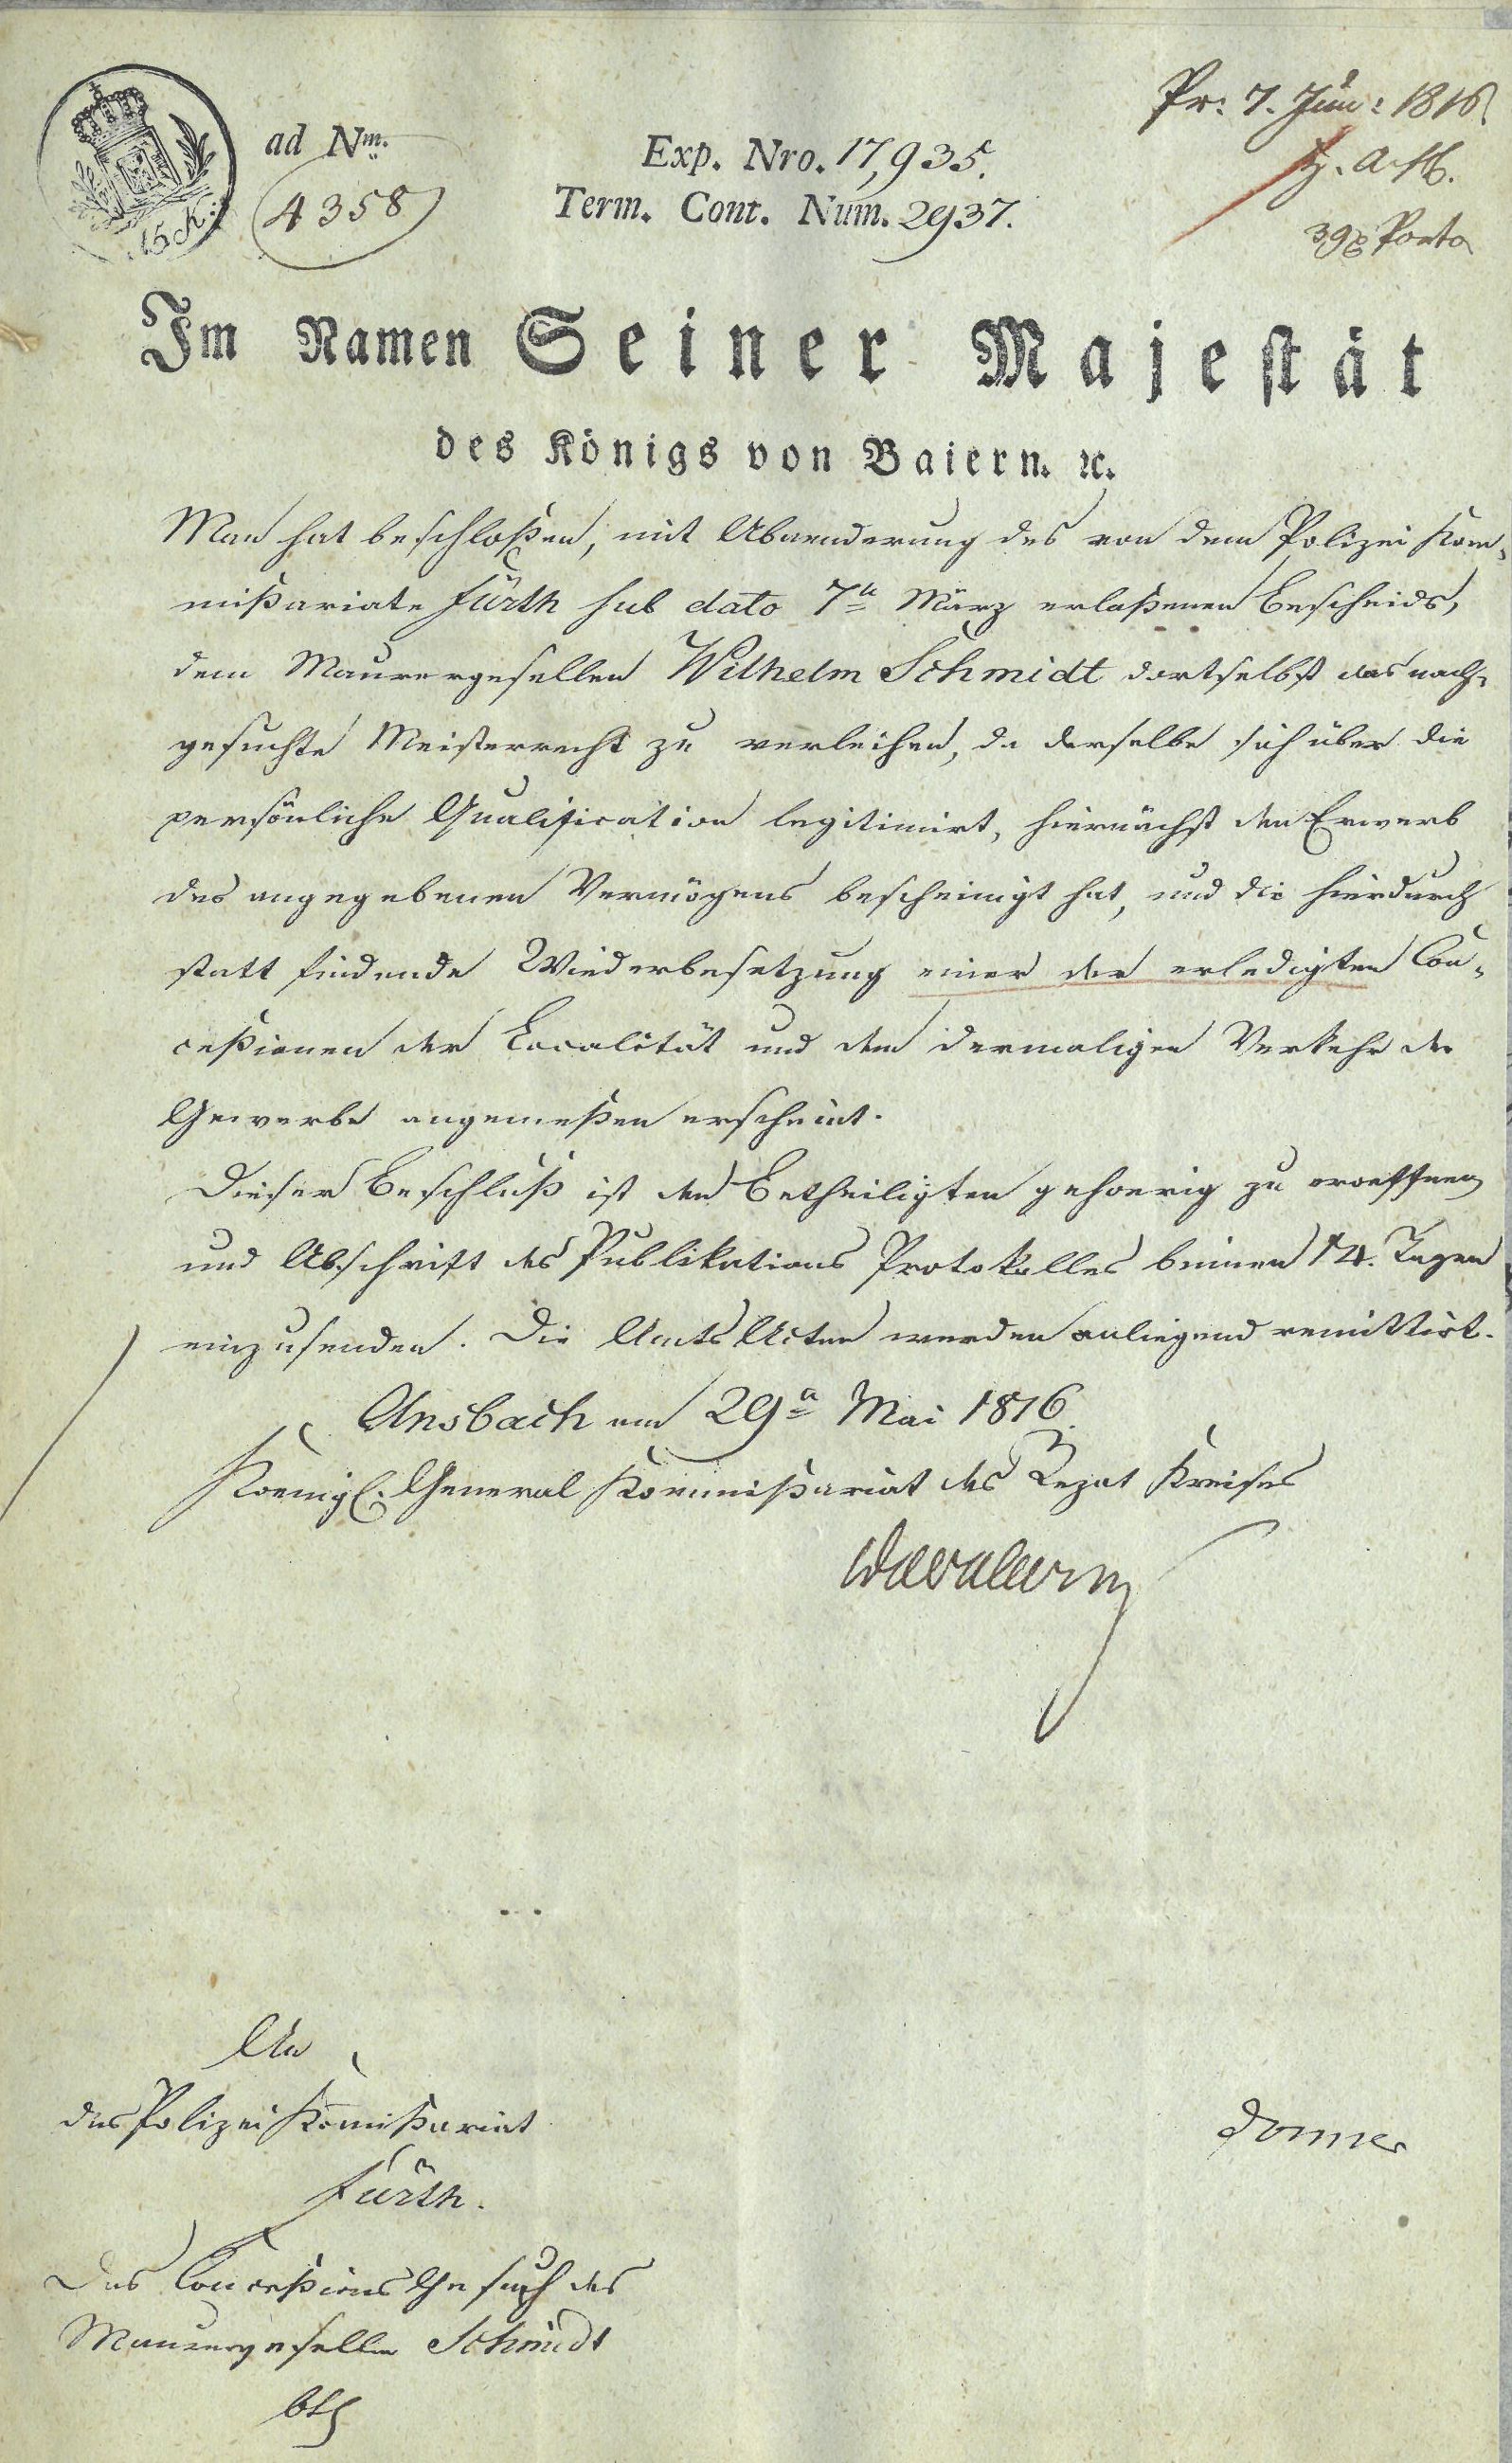 15 K.
ad Nm.
4358
Exp. Nro. 17,935.
Term. Cont. Num. 2937.
Pr: 7. Jun: 1816.
39x Porto
Im Namen Seiner Majestät
des Königs von Baiern. ꝛc.
Man hat beschloßen, mit Abaenderung des von dem Polizei Kom-
mißariate Fürth sub dato 7n März erlaßenen Bescheids,
dem Maurergesellen Wilhelm Schmidt dortselbst das nach-
gesuchte Meisterrecht zu verleihen, da derselbe sich über die
persönliche Qualification legitimirt, hiernächst den Erwerb
des angegebenen Vermögens bescheinigt hat, und die hierdurch
statt findende Wiederbesetzung einer der erledigten Con-
ceßionen der Localität und dem dermaligen Verkehr der
Gewerbe angemeßen erscheint.
Dieser Beschluß ist den Betheiligten gehoerig zu eroeffnen
und Abschrift des Publikations Protokolles binnen 14. Tagen
einzusenden. Die Amts Acten werden anliegend remittirt.
Ansbach am 29n Mai 1816.
Koenigl. General Kommißariat des Rezat Kreises
An
das Polizei Komißariat
Fürth.
Donner
Das Conceßions Gesuch des
Maurergesellen Schmidt
btf